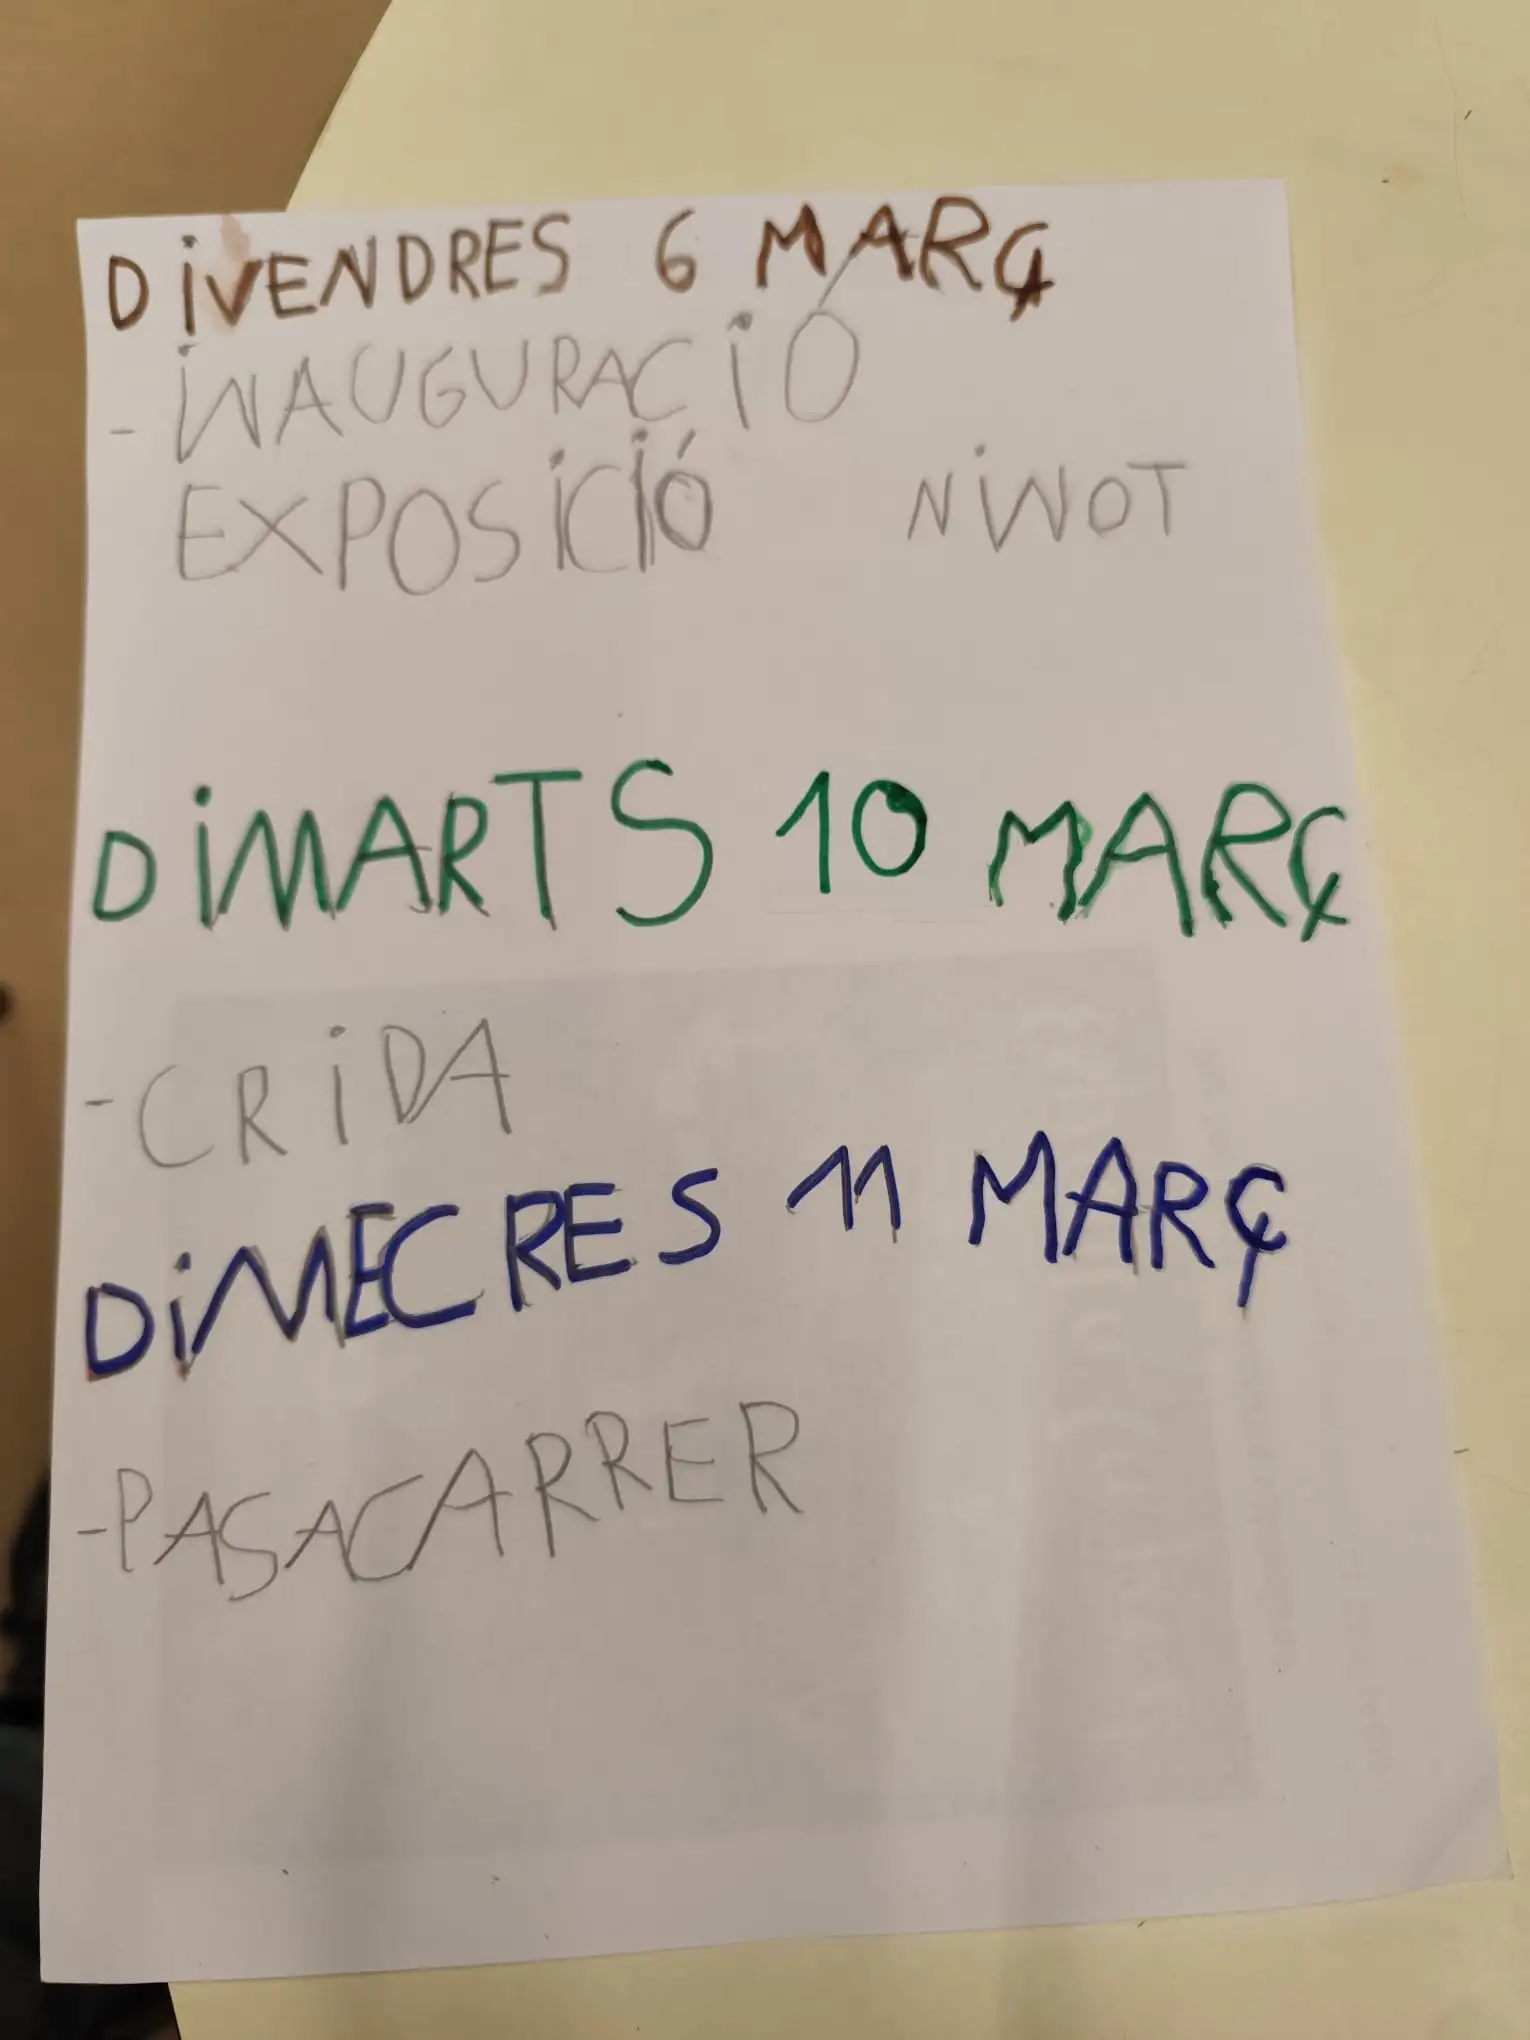 DiVENDRES 6 MARÇ
- iNAUGURACiÓ
EXPOSiCiÓ NiNOT
DiMARTS 10 MARÇ
- CRiDA
DiMECRES 11 MARÇ
- PASACARRER